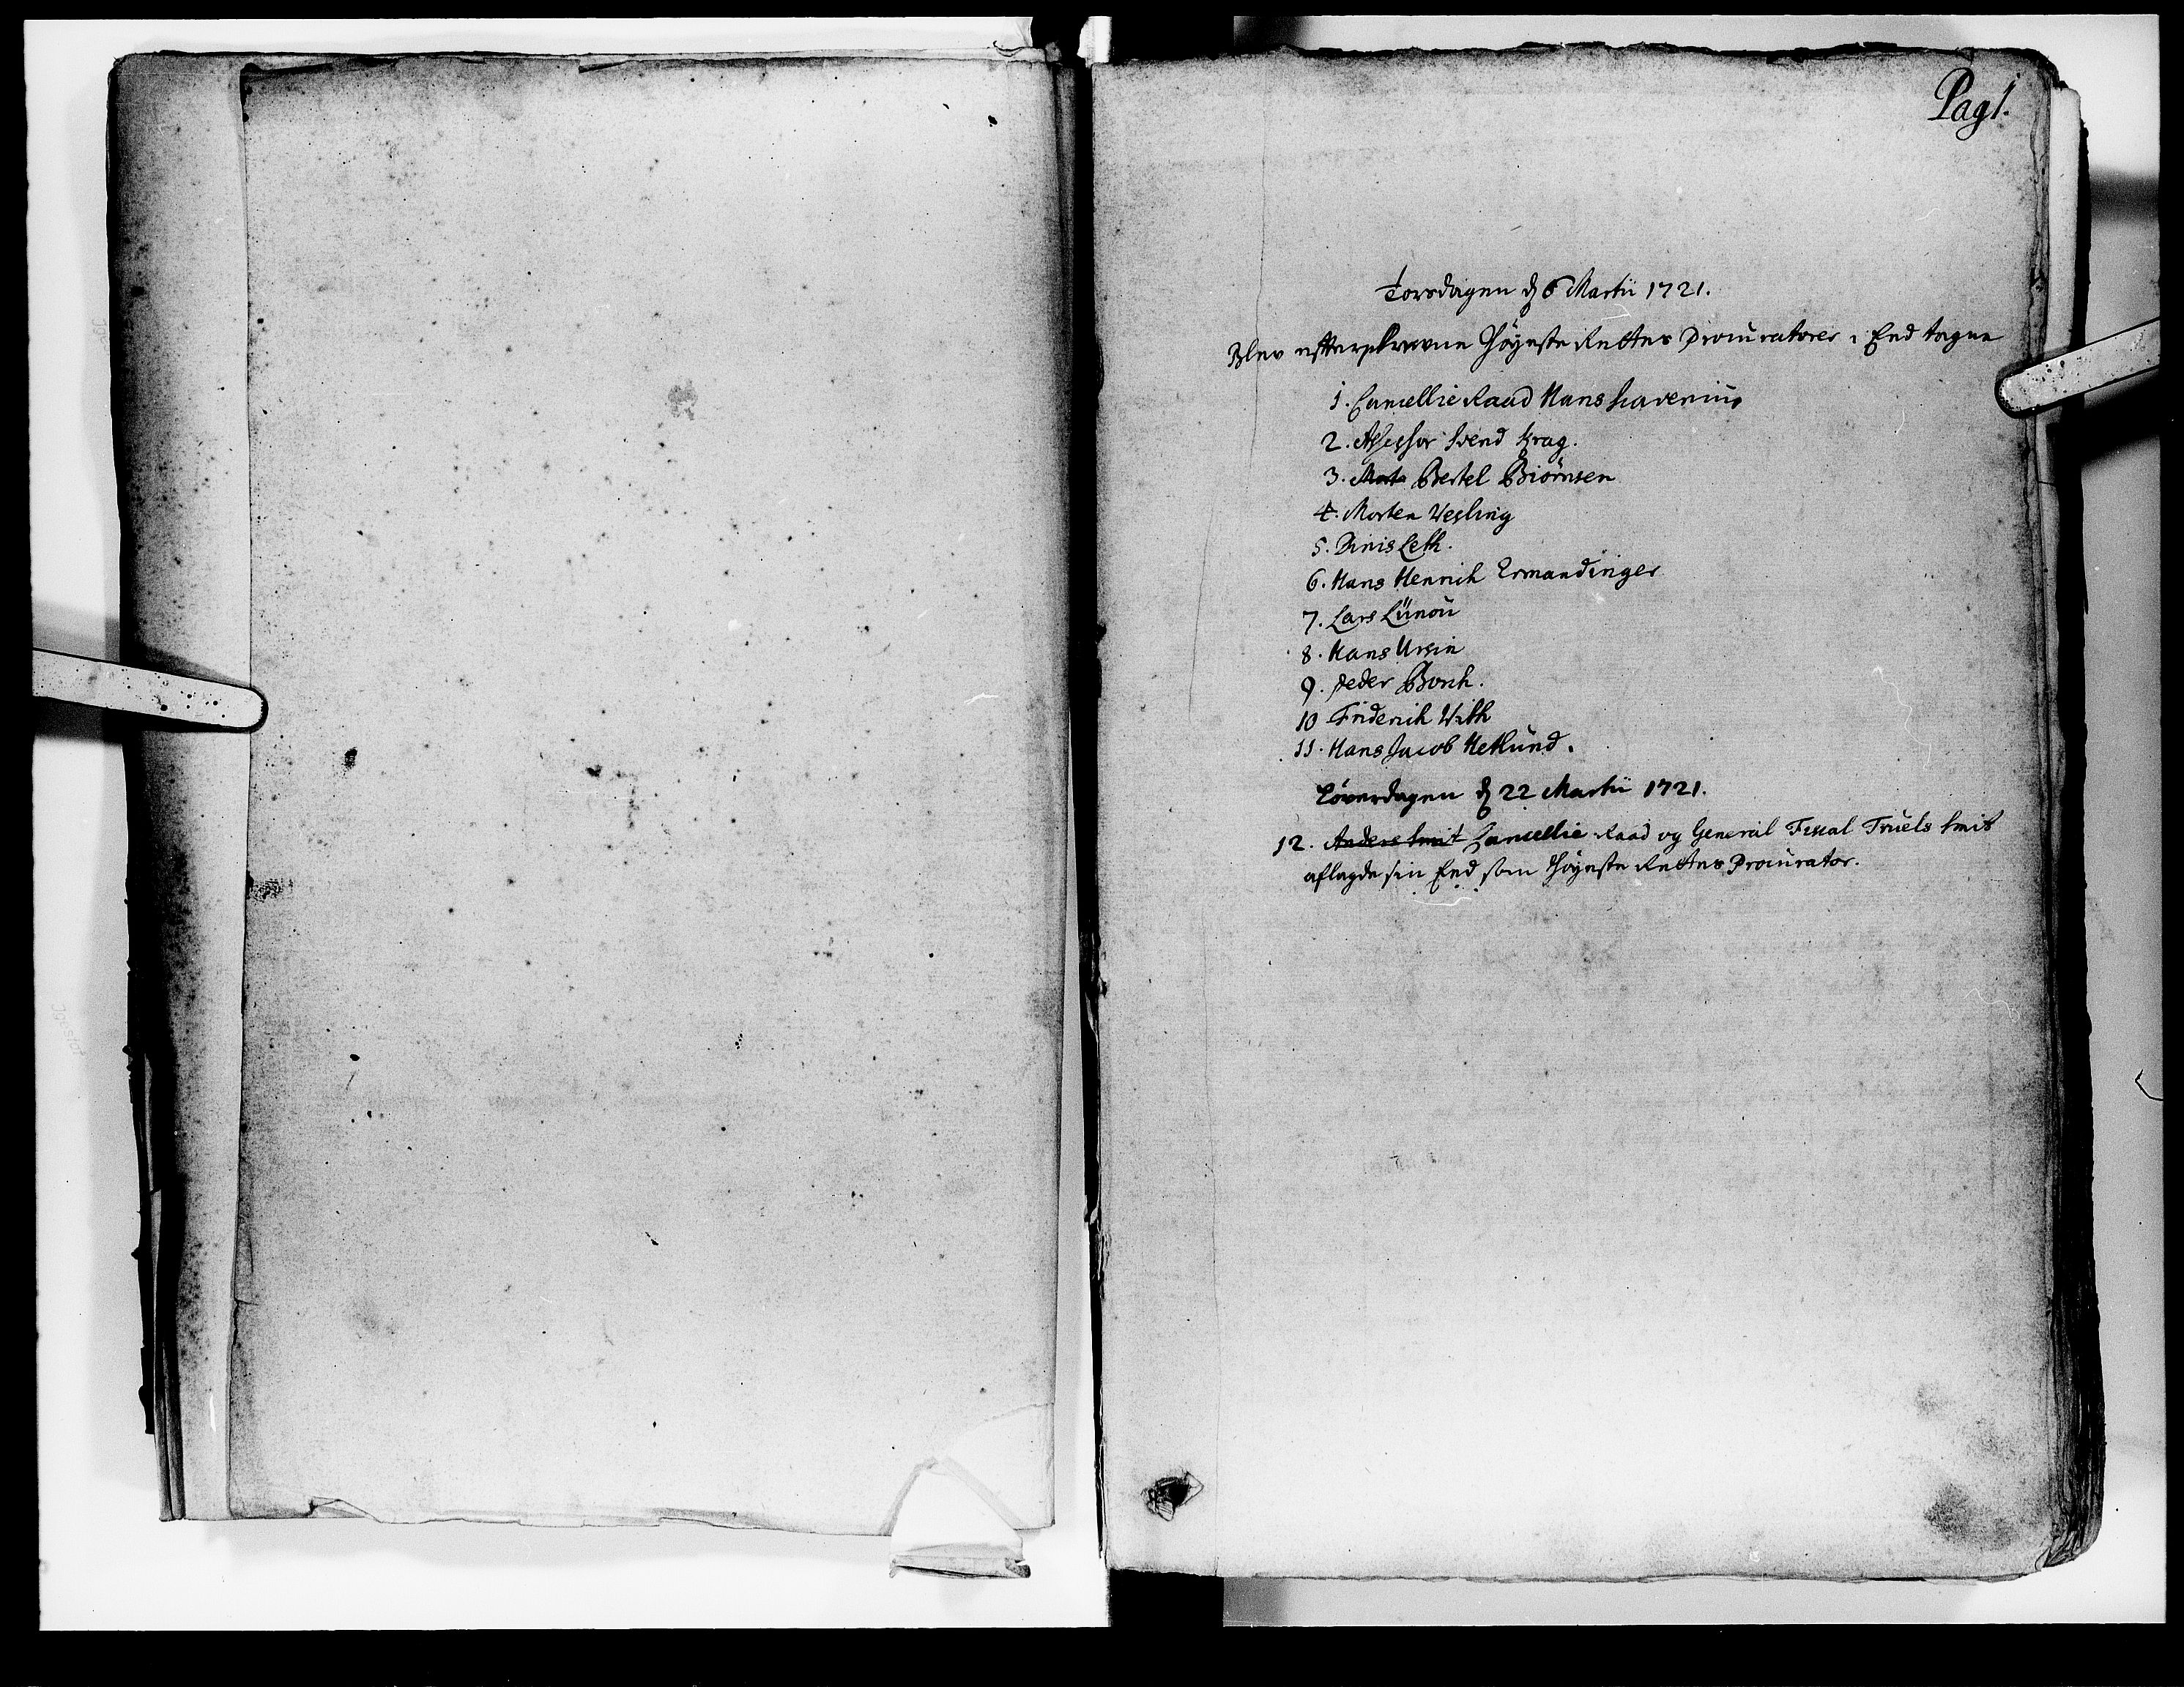 Pag 1.
Torsdagen d 6 Martii 1721.
Blev efterskrevne Høyeste Rettes Procuratorer i Eed tagne
1. Cancellie Raad Hans Scavenius
2. Assessor Svend Krag.
3. Mort Bertel Biørnsen
4. Morten Wesling
5. Dinis Leth.
6. Hans Henrich Ermandinger
7. Lars Lünou
8. Hans Ursin
9. Peder Borch.
10 Friderich With
11. Hans Jacob Hetlund.
Løverdagen d 22 Martii 1721.
12. Anders Smit Cancellie Raad og General Fiscal Truels Smit
aflagde sin Eed som Høyeste Rettes Procurator.